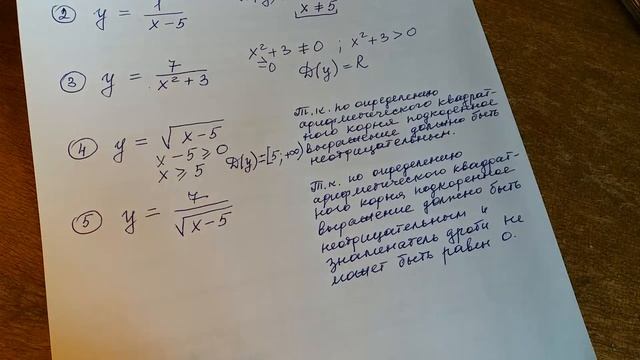 ② y = 1/(x-5)
x ≠ 5
③ y = 7/(x²+3)
x²+3 ≠ 0 ; x²+3 > 0
≥0 D(y) = R
④ y = √(x-5)
x-5 ≥ 0
x ≥ 5
D(y)=[5;+∞)
Т.к. по определению
арифметического квадрат-
ного корня подкоренное
выражение должно быть
неотрицательным.
⑤ y = 7/√(x-5)
Т.к. по определению
арифметического квадрат-
ного корня подкоренное
выражение должно быть
неотрицательным и
знаменатель дроби не
может быть равен 0.